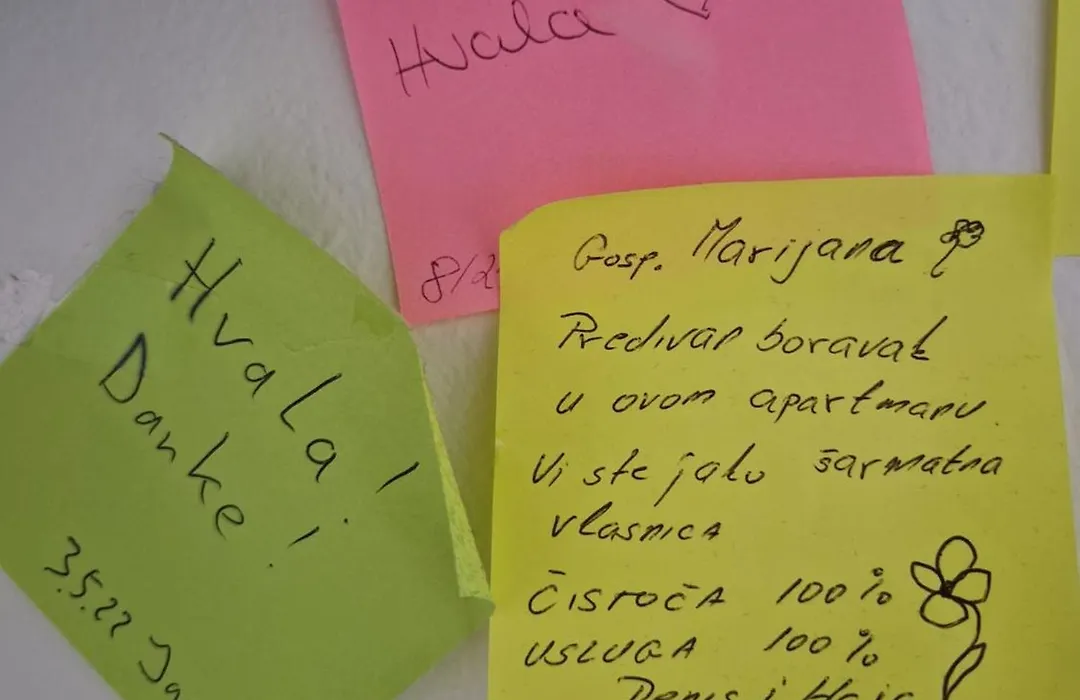 Hvala
8/2
Hvala!
Danke!
3.5.22 Ja
Gosp. Marijana
Predivan boravak
u ovom apartmanu
Vi ste jako šarmatna
vlasnica
ČISTOČA 100%
USLUGA 100%
Denis i